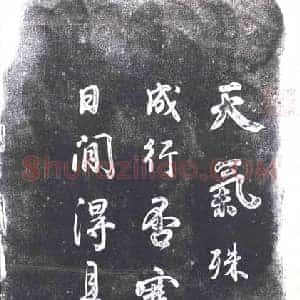 天氣殊
成行否寒
日間得且
Shufaziliao.COM